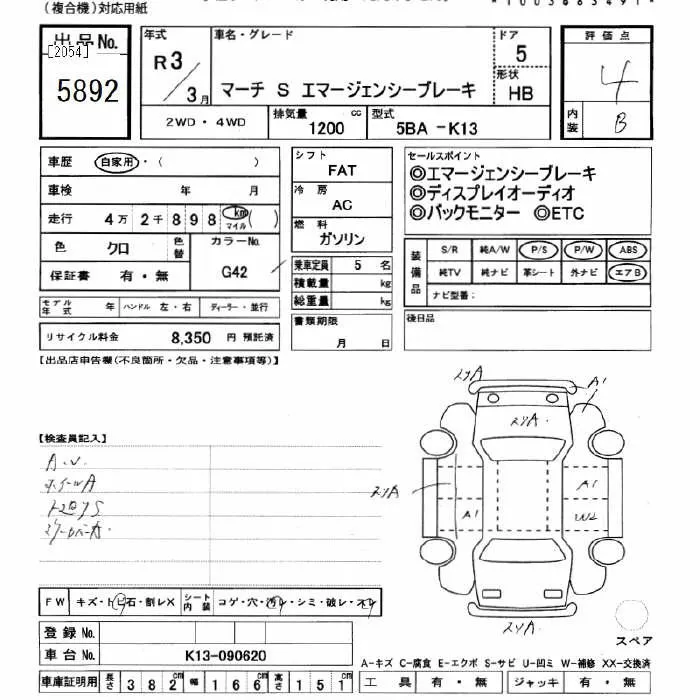 (複合機)対応用紙
出品No.
[2054]
5892
年式
R3
3月
車名・グレード
マーチ S エマージェンシーブレーキ
ドア
5
形状
HB
2WD・4WD
排気量
1200
cc
型式
5BA -K13
評価点
4
内装
B
車歴
自家用・( )
車検 年 月
走行 4万 2千 8 9 8 km マイル ( )
色 クロ
色替
カラーNo.
G42
保証書 有・無
シフト
FAT
冷房
AC
燃料
ガソリン
乗車定員 5 名
積載量 kg
総重量 kg
書類期限
月 日
セールスポイント
◎エマージェンシーブレーキ
◎ディスプレイオーディオ
◎バックモニター ◎ETC
装備品
S/R 純A/W P/S P/W ABS
純TV 純ナビ 革シート 外ナビ エアB
ナビ型番:
後日品
モデル年式 年
ハンドル 左・右
ディーラー・並行
リサイクル料金 8,350 円 預託済
【出品店申告機(不良箇所・欠品・注意事項等)】
【検査員記入】
A.U.
ホイールA
FW キズ・トビ石・割レX
シート内装 コゲ・穴・汚レ・シミ・破レ・スレ
登録No.
車台No. K13-090620
車庫証明用 長さ 382cm 幅 166cm 高さ 151cm
A1
A1
A1
W2
スペア
A-キズ C-腐食 E-エクボ S-サビ U-凹ミ W-補修 XX-交換済
工具 有・無 ジャッキ 有・無